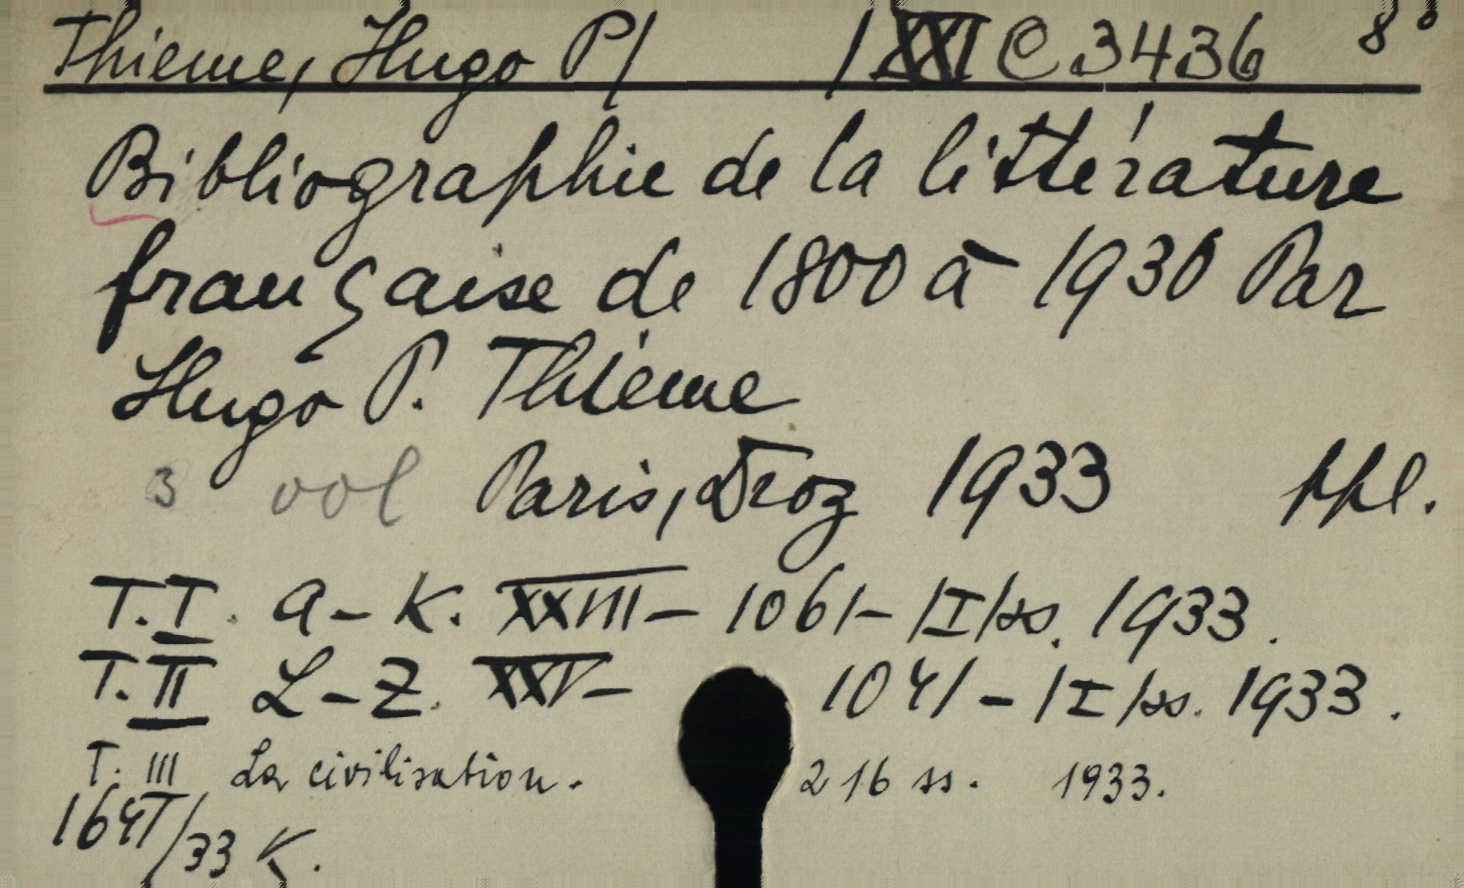 Thieme, Hugo P/ / XXI C 3436 8°
Bibliographie de la littérature
française de 1800 à 1930 Par
Hugo P. Thieme
3 vol Paris, Droz 1933 ppl.
T. I. A-K. XXIII- 1061-/I/ss. 1933.
T. II L-Z. XXV- 1041-/I/ss. 1933.
T. III La civilisation. 216 ss. 1933.
/33 K.